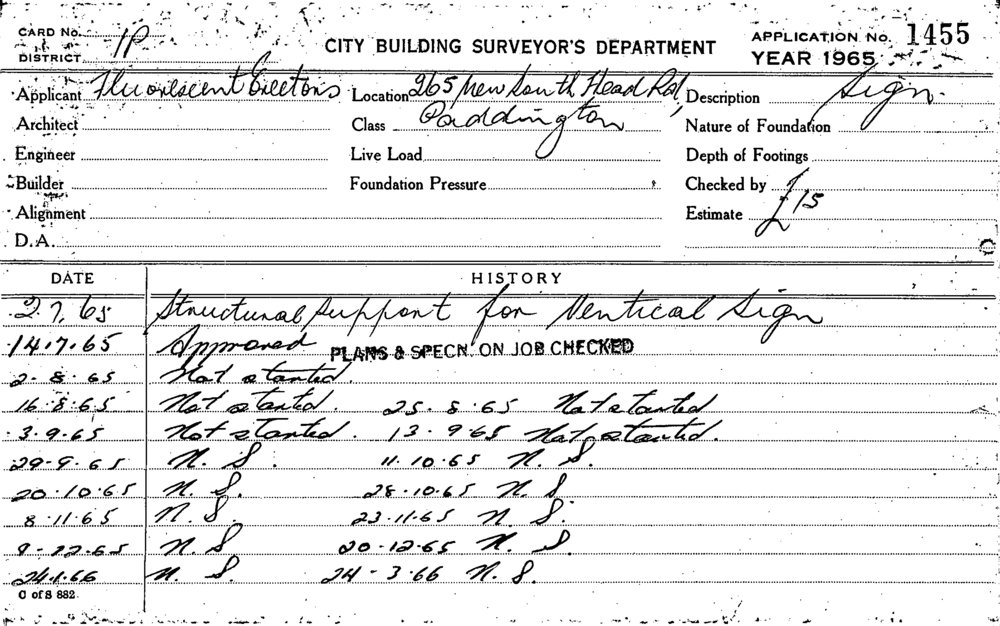 CARD No. 1P CITY BUILDING SURVEYOR'S DEPARTMENT APPLICATION No. 1455
DISTRICT YEAR 1965
Applicant Fluorescent Erectors Location 265 New South Head Rd, Description Sign.
Architect Class Paddington Nature of Foundation
Engineer Live Load Depth of Footings
Builder Foundation Pressure Checked by
Alignment Estimate £15
D.A.
DATE HISTORY
2.7.65 Structural Support for Vertical Sign
14.7.65 Approved PLANS & SPECN. ON JOB CHECKED
2-8-65 Not started.
16.8.65 Not started. 25.8.65 Not started
3.9.65 Not started. 13.9.65 Not started.
29-9-65 N. S. 11.10.65 N. S.
20.10.65 N. S. 28.10.65 N. S.
8.11.65 N. S. 23.11.65 N. S.
9-12.65 N. S 20-12-65 N. S.
24.1.66 N. S. 24-3.66 N. S.
C of S 882